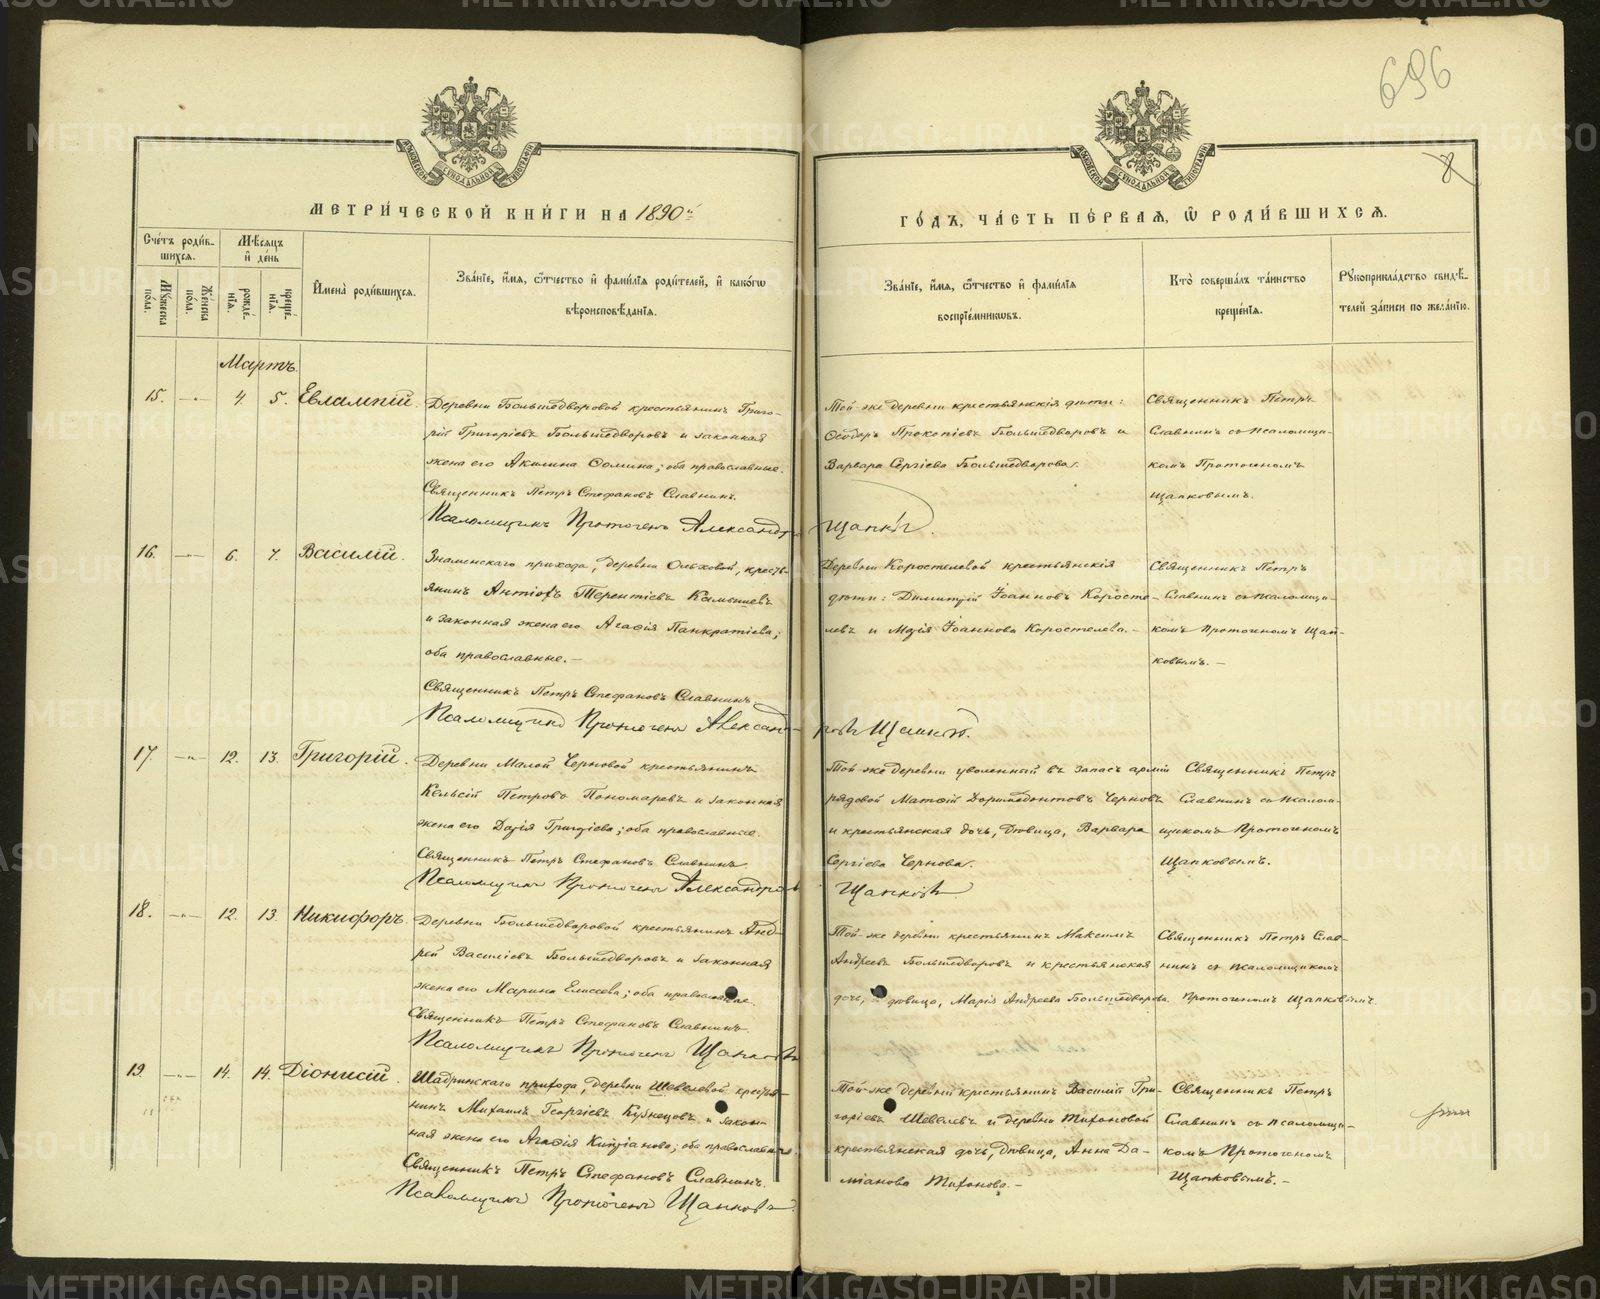 696
8
МЕТРИ́ЧЕСКОЙ КНИ́ГИ НА 1890й
ГО́ДЪ, ЧА́СТЬ ПЕ́РВАЯ, Ѡ РОДИ́ВШИХСЯ.
Сче́тъ роди́в-
шихся.
Му́жеска по́ла.
Же́нска по́ла.
Мѣ́сяцъ и де́нь
рожде́нїя.
креще́нїя.
Имена̀ роди́вшихся.
Зва́нїе, и́мя, ѻ́тчество и фами́лїя роди́телей, и како́гѡ
вѣроисповѣ́данїя.
Зва́нїе, и́мя, ѻ́тчество и фами́лїя
воспрїе́мниковъ.
Кто̀ соверша́лъ та́инство
креще́нїя.
Рꙋкоприкла́дство свидѣ́-
телей за́писи по жела́нїю.
Мартъ.
15. 4. 5. Евлампій.
Деревни Большедворовой крестьянинъ Григо-
рій Григоріевъ Большедворовъ и законная
жена его Акилина Ѳомина; оба православные.
Священникъ Петръ Стефановъ Славнинъ.
Псаломщикъ Протогенъ Александровъ Щапковъ
Той-же деревни крестьянскія дѣти:
Ѳеодоръ Прокопіевъ Большедворовъ и
Варвара Сергіева Большедворова.
Священникъ Петръ
Славнинъ съ псаломщи-
комъ Протогеномъ
Щапковымъ.
16. 6. 7. Василій.
Знаменскаго прихода, деревни Ольховой, кресть-
янинъ Антіохъ Терентіевъ Камышевъ
и законная жена его Агафія Панкратіева;
оба православные. –
Священникъ Петръ Стефановъ Славнинъ
Псаломщикъ Протогенъ Александ-
ровъ Щапковъ.
Деревни Коростелевой крестьянскія
дѣти: Димитрій Іоанновъ Коросте-
левъ и Марія Іоаннова Коростелева. –
Священникъ Петръ
Славнинъ съ псаломщи-
комъ Протогеномъ Щап-
ковымъ. –
17. 12. 13. Григорій.
Деревни Малой Черновой крестьянинъ
Кельсій Петровъ Пономаревъ и законная
жена его Дарія Григоріева; оба православные.
Священникъ Петръ Стефановъ Славнинъ
Псаломщикъ Протогенъ Александровъ Щапковъ
Той-же деревни уволенный въ запасъ арміи
рядовой Матѳій Доримедонтовъ Черновъ
и крестьянская дочь, дѣвица, Варвара
Сергіева Чернова.
Священникъ Петръ
Славнинъ съ псалом-
щикомъ Протогеномъ
Щапковымъ.
18. 12. 13. Никифоръ.
Деревни Большедворовой крестьянинъ Анд-
рей Василіевъ Большедворовъ и законная
жена его Марина Елисеева; оба православные.
Священникъ Петръ Стефановъ Славнинъ.
Псаломщикъ Протогенъ Щапковъ
Той-же деревни крестьянинъ Максимъ
Андреевъ Большедворовъ и крестьянская
дочь, дѣвица, Марія Андреева Большедворова.
Священникъ Петръ Слав-
нинъ съ псаломщикомъ
Протогеномъ Щапковымъ.
19. 14. 14. Діонисій.
Шадринскаго прихода, деревни Шевелевой крестья-
нинъ Михаилъ Георгіевъ Кузнецовъ и закон-
ная жена его Агафія Кипріанова; оба православные
Священникъ Петръ Стефановъ Славнинъ.
Псаломщикъ Протогенъ Щапковъ
Той-же деревни крестьянинъ Василій Гри-
горіевъ Шевелевъ и деревни Тихоновой
крестьянская дочь, дѣвица, Анна Да-
міанова Тихонова. –
Священникъ Петръ
Славнинъ съ псаломщи-
комъ Протогеномъ
Щапковымъ. –
METRIKI.GASO-URAL.RU